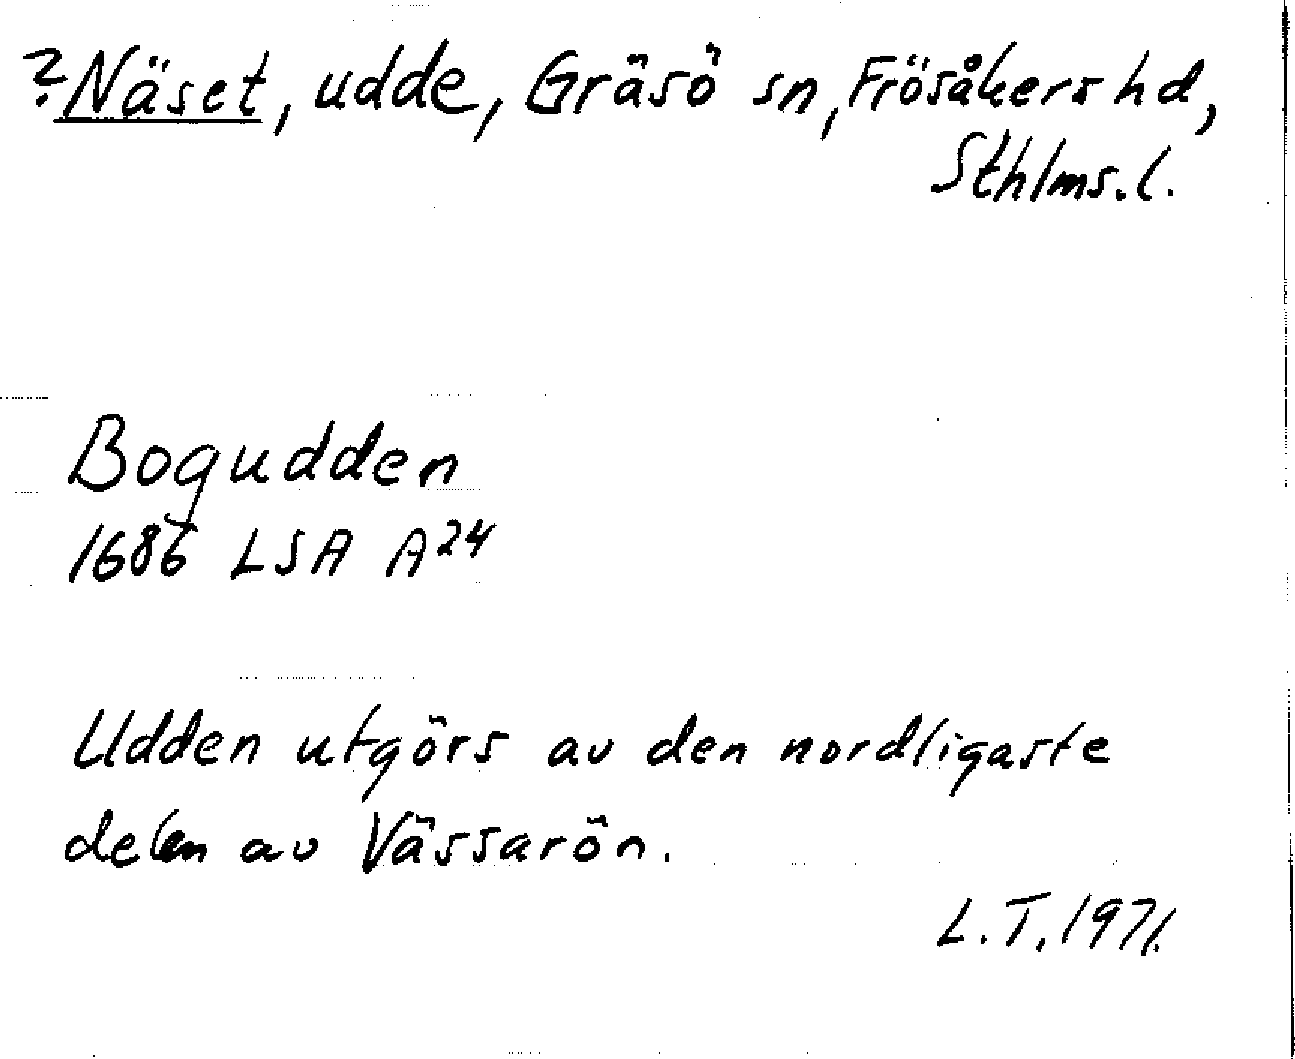 ? Näset, udde, Gräsö sn, Frösåkers hd,
Sthlms. l.
Bogudden
1686 LSA A24
Udden utgörs av den nordligaste
delen av Vässarön.
L.T. 1971.